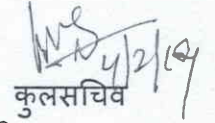 4/2/19
कुलसचिव